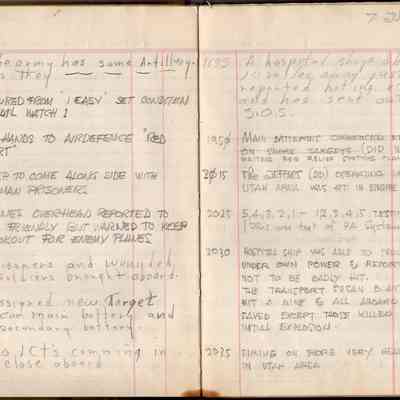 e army has some Artillery
s they
URED FROM "1 EASY" SET CONDITION
WATCH 1
HANDS TO AIRDEFENCE "RED
RT"
TO COME ALONG SIDE WITH
MAN PRISONERS
NES OVERHEAD REPORTED TO
FRIENDLY BUT WARNED TO KEEP
OKOUT FOR ENEMY PLANES
isoners and wounded
soldiers brought aboard.
ssigned new Target
can main battery and
secondary battery.
o LCT's comming in
close aboard
7 JU
A hospital ship ab
10 miles away just
reported hitting a
and has sent out
S.O.S.
1950 MAIN BATTERY COMMENCED
ON SHORE TARGETS (DID
WAITING FOR RELIEF STATIONS
2015 FIRE JEFFERS (DD) OPERATING
UTAH AREA WAS HIT IN ENGINE
2025 5, 4, 3, 2, 1 - 1, 2, 3, 4, 5 TESTIN
test of PA System
2030 HOSPITAL SHIP WAS ABLE TO
UNDER OWN POWER & REPORT
NOT TO BE BADLY HIT.
THE TRANSPORT SUSAN B. ANT
HIT A MINE & ALL ABOARD
SAVED EXCEPT THOSE KILLED
INITIAL EXPLOSION.
2035 FIRING ON SHORE VERY HEA
IN UTAH AREA